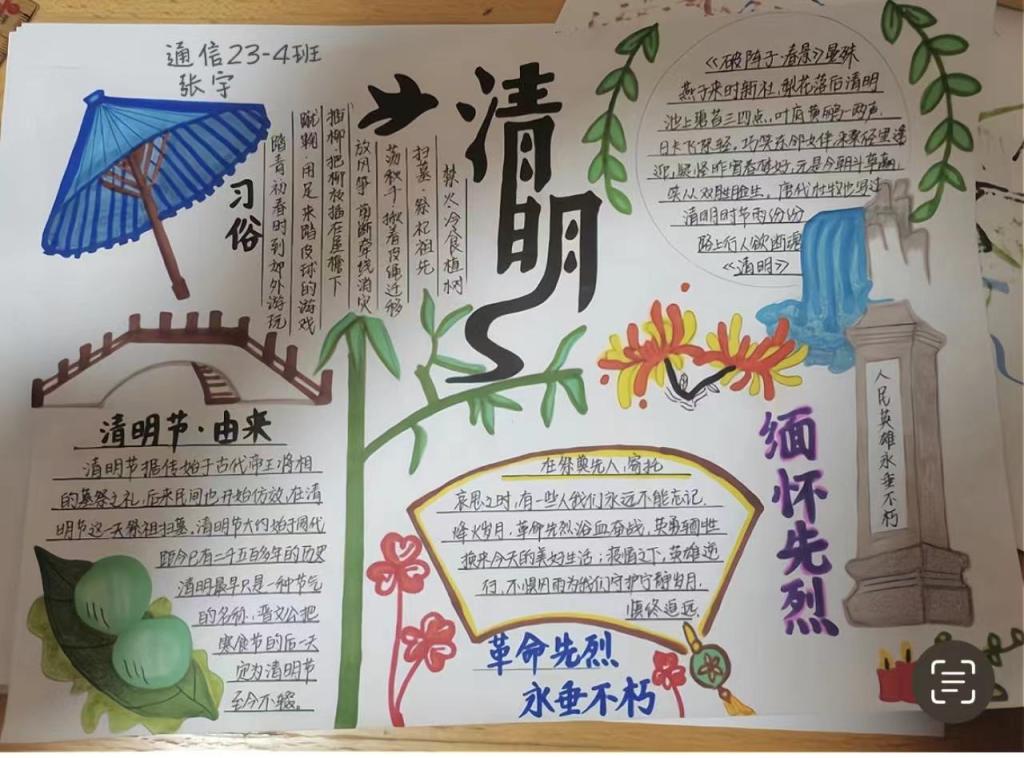 通信23-4班
张宇
清明
习俗
禁火冷食植树
扫墓·祭祀祖先
荡秋千·揪着皮绳迁移
放风筝·剪断牵线消灾
插柳·把柳枝插在屋檐下
蹴鞠·用足来踏皮球的游戏
踏青初春时到郊外游玩
《破阵子·春景》晏殊
燕子来时新社,梨花落后清明
池上碧苔三四点,叶底黄鹂一两声
日长飞絮轻,巧笑东邻女伴,采桑径里逢
迎,疑怪昨宵春梦好,元是今朝斗草赢
笑从双脸生。唐代杜牧也写过
清明时节雨纷纷
路上行人欲断魂
《清明》
清明节·由来
清明节据传始于古代帝王将相
的墓祭之礼,后来民间也开始仿放,在清
明节这一天祭祖扫墓,清明节大约始于周代
距今已有二千五百多年的历史
清明最早只是一种节气
的名称,晋文公把
寒食节的后一天
定为清明节
至今不辍。
在祭奠先人,寄托
哀思之时,有一些人我们永远不能忘记.
烽火岁月,革命先烈浴血奋战,英勇牺牲
换来今天的美好生活;疫情之下,英雄逆
行,不惧风雨为我们守护宁静岁月.
慎终追远
革命先烈
永垂不朽
缅怀先烈
人民英雄永垂不朽